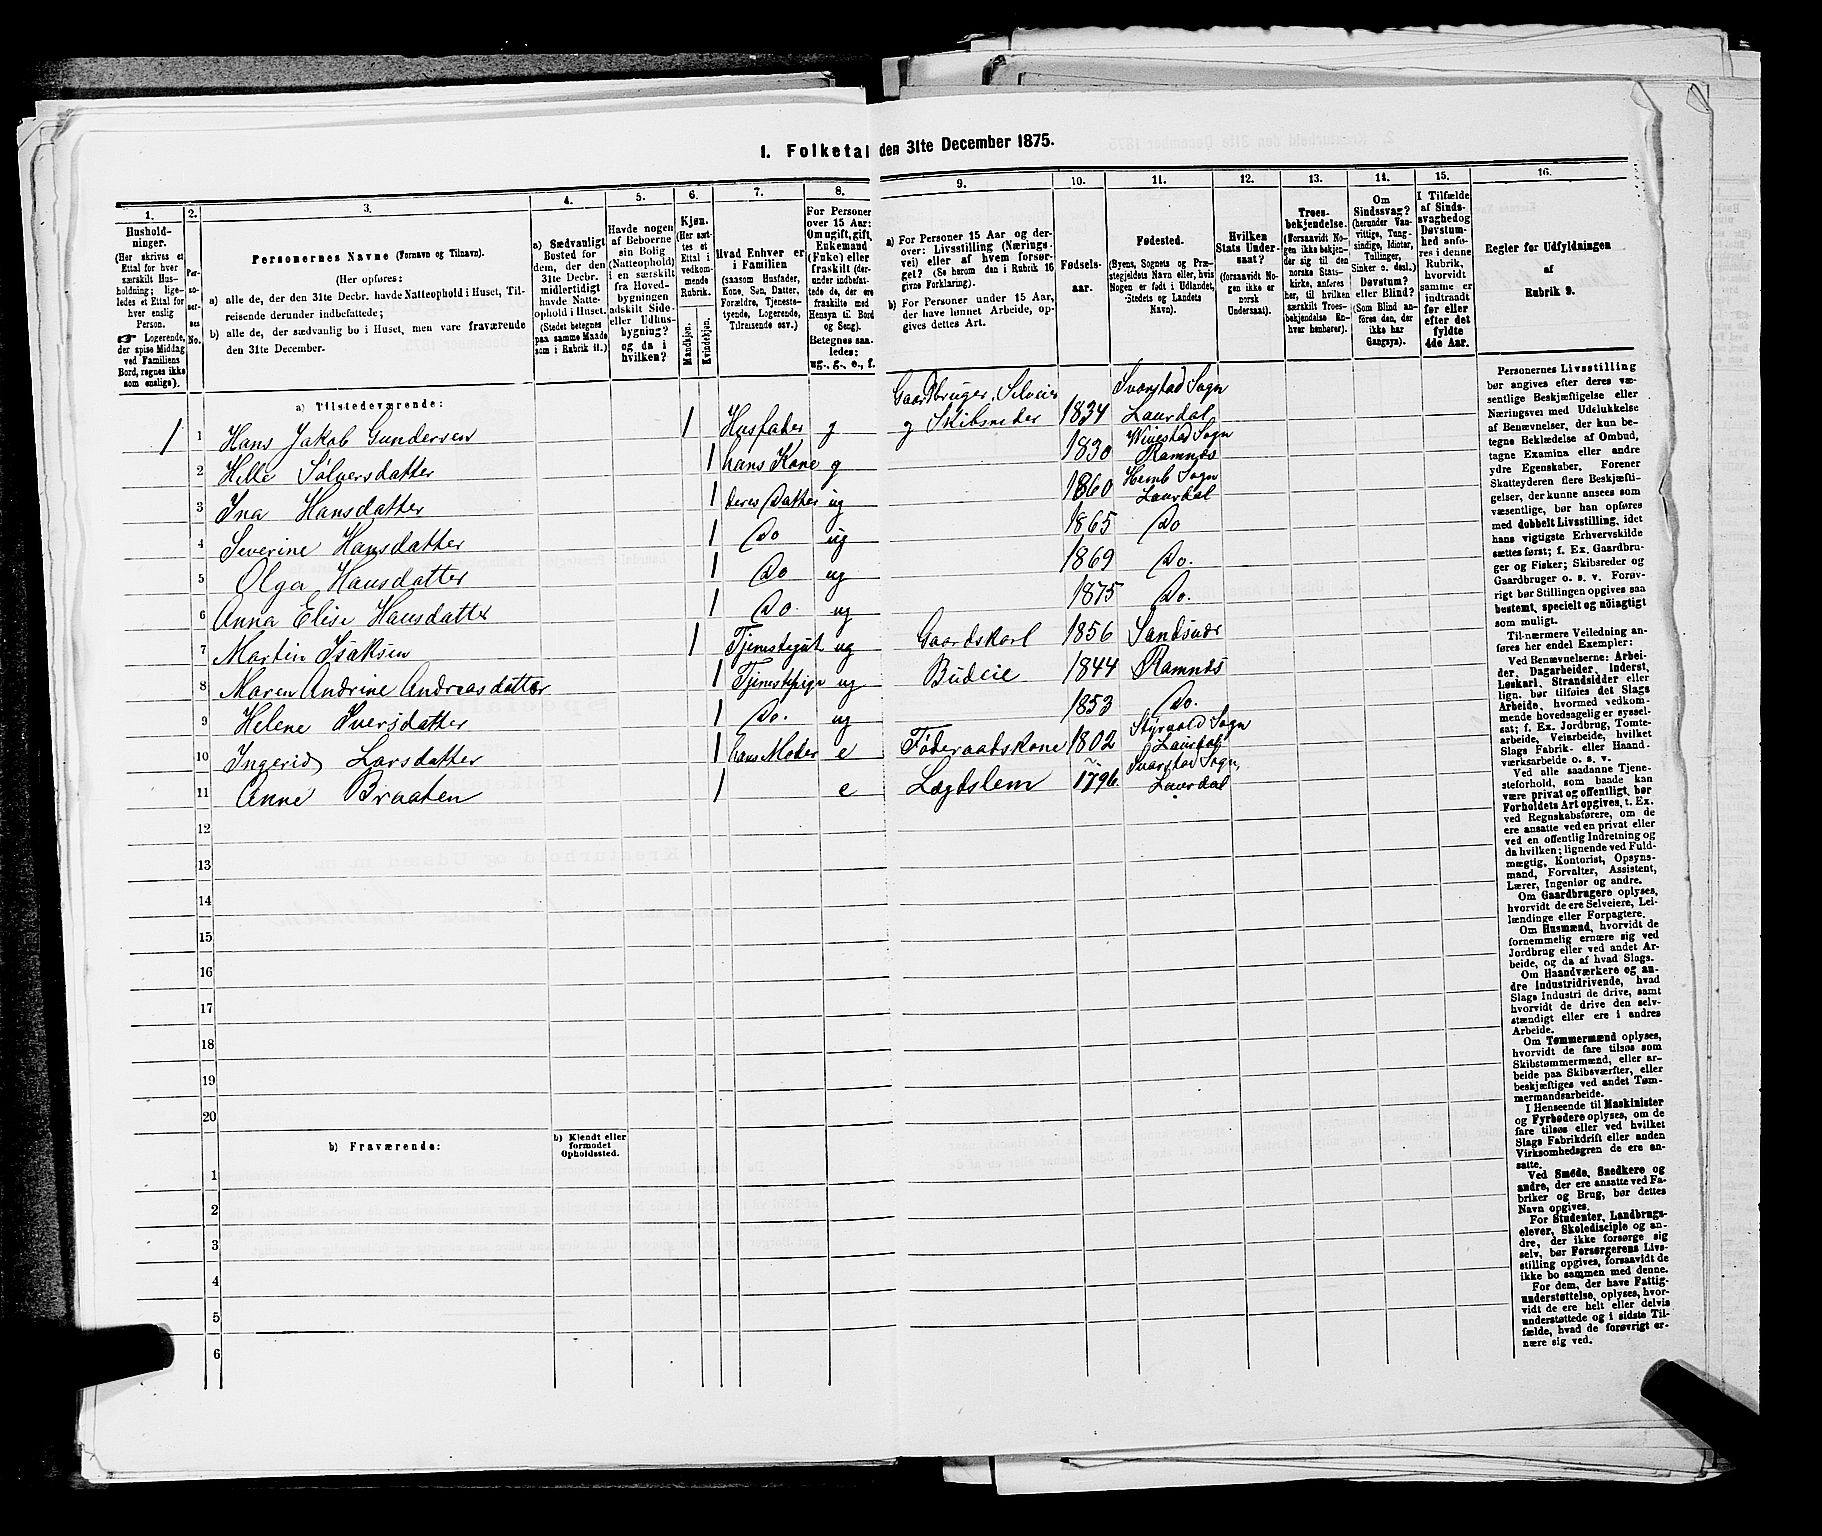 1. Folketal den 31te December 1875.
1.
2.
3.
4.
5.
6.
7.
8.
9.
10.
11.
12.
13.
14.
15.
16.
Hushold-
ninger.
(Her skrives et
Ettal for hver
særskilt Hus-
holdning; lige-
ledes et Ettal for
hver enslig
Person.
☞ Logerende,
der spise Middag
ved Familiens
Bord, regnes ikke
som enslige).
Per-
so-
ner-
nes
No.
Personernes Navne (Fornavn og Tilnavn).
(Her opføres:
a) alle de, der den 31te Decbr. havde Natteophold i Huset, Til-
reisende derunder indbefattede;
b) alle de, der sædvanlig bo i Huset, men vare fraværende
den 31te December.
a) Sædvanligt
Bosted for
dem, der den
31te Decbr.
midlertidigt
havde Natte-
ophold i Huset.
(Stedet betegnes
paa samme Maade
som i Rubrik 11.)
Havde nogen
af Beboerne
sin Bolig
(Natteophold)
i en særskilt
fra Hoved-
bygningen
adskilt Side-
eller Udhus-
bygning?
og da i
hvilken?
Kjøn.
(Her sæt-
tes et
Ettal i
vedkom-
mende
Rubrik.
Mandkjøn.
Kvindekjøn.
Hvad Enhver er
i Familien
(saasom Husfader,
Kone, Søn, Datter,
Forældre, Tjeneste-
tyende, Logerende,
Tilreisende osv.)
For Personer
over 15 Aar:
Om ugift, gift,
Enkemand
(Enke) eller
fraskilt (der-
under indbefat-
tede de, der ere
fraskilte med
Hensyn til Bord
og Seng).
Betegnes saa-
ledes:
ug., g., e., f.
a) For Personer 15 Aar og der-
over: Livsstilling (Nærings-
vei) eller af hvem forsør-
get? (Se herom den i Rubrik 16
givne Forklaring).
b) For Personer under 15 Aar,
der have lønnet Arbeide, op-
gives dettes Art.
Fødsels-
aar.
Fødested.
(Byens, Sognets og Præ-
stegjeldets Navn eller, hvis
Nogen er født i Udlandet,
Stedets og Landets
Navn).
Hvilken
Stats Under-
saat?
(forsaavidt No-
gen ikke er
norsk
Undersaat).
Troes-
bekjendelse.
(Forsaavidt No-
gen ikke bekjen-
der sig til den
norske Stats-
kirke, anføres
her, til hvilken
særskilt Troes-
bekjendelse En-
hver henhører).
Om
Sindssvag?
(herunder Van-
vittige, Tung-
sindige, Idioter,
Tullinger,
Sinker o. desl.)
Døvstum?
eller Blind?
(Som Blind an-
føres den, der
ikke har
Gangsyn).
I Tilfælde
af Sinds-
svaghed og
Døvstum-
hed anfø-
res i denne
Rubrik,
hvorvidt
samme er
indtraadt
før eller
efter det
fyldte
4de Aar.
Regler for Udfyldningen
af
Rubrik 9.
a) Tilstedeværende:
1 1 Hans Jakob Gundersen 1 Husfader g Gaardbruger, Selveier g Skibsreder 1834 Svarstad Sogn Laurdal
2 Helle Sølversdatter 1 hans Kone g 1830 Vivestad Sogn Ramnæs
3 Ina Hansdatter 1 deres Datter ug 1860 Hemb Sogn Laurdal
4 Severine Hansdatter 1 Do ug 1865 Do
5 Olga Hansdatter 1 Do ug 1869 Do.
6 Anna Elise Hansdatter 1 Do. ug 1875 Do.
7 Martin Isaksen 1 Tjenestegut ug Gaardskarl 1856 Sandsvær
8 Maren Andrine Andreasdatter 1 Tjenestepige ug Budeie 1844 Ramnæs
9 Helene Iversdatter 1 Do. ug 1853 Do.
10 Ingerid Larsdatter 1 hans Moder e Føderaadskone 1802 Styrvold Sogn Laurdal
11 Anne Braaten 1 e Lægdslem 1796 Svarstad Sogn, Laurdal
12
13
14
15
16
17
18
19
20
b) Fraværende:
b) Kjendt eller
formodet
Opholdssted.
1
2
3
4
5
6
Personernes Livsstilling
bør angives efter deres væ-
sentlige Beskjæftigelse eller
Næringsvei med Udelukkelse
af Benævnelser, der kun be-
tegne Beklædelse af Ombud,
tagne Examina eller andre
ydre Egenskaber. Forener
Skatteyderen flere Beskjæfti-
gelser, der kunne ansees som
væsentlige, bør han opføres
med dobbelt Livsstilling, idet
hans vigtigste Erhvervskilde
sættes først; f. Ex. Gaardbru-
ger og Fisker; Skibsreder og
Gaardbruger o. s. v. Forøv-
rigt bør Stillingen opgives saa
bestemt, specielt og nøiagtigt
som muligt.
Til nærmere Veiledning an-
føres her endel Exempler:
Ved Benævnelserne: Arbei-
der, Dagarbeider, Inderst,
Løskarl, Strandsidder eller
lign. bør tilføies det Slags
Arbeide, hvormed vedkom-
mende hovedsagelig er syssel-
sat; f. Ex. Jordbrug, Tomte-
arbeide, Veiarbeide, hvilket
Slags Fabrik- eller Haand-
værksarbeide o. s. v.
Ved alle saadanne Tjene-
steforhold, som baade kan
være privat og offentligt, bør
Forholdets Art opgives, t. Ex.
ved Regnskabsførere, om de
ere ansatte ved en privat eller
ved en offentlig Indretning og
da hvilken; lignende ved Fuld-
mægtig, Kontorist, Opsyns-
mand, Forvalter, Assistent,
Lærer, Ingeniør og andre.
Om Gaardbrugere oplyses,
hvorvidt de ere Selveiere, Lei-
lændinge eller Forpagtere.
Om Husmænd, hvorvidt de
fornemmelig ernære sig ved
Jordbrug eller ved andet Ar-
beide, og da af hvad Slags.
Om Haandværkere og an-
dre Industridrivende, hvad
Slags Industri de drive, samt
hvorvidt de drive den selv-
stændigt eller ere i andres
Arbeide.
Om Tømmermænd oplyses,
hvorvidt de fare tilsøs som
Skibstømmermænd, eller ar-
beide paa Skibsværfter, eller
beskjæftiges ved andet Tøm-
mermandsarbeide.
I Henseende til Maskinister
og Fyrbødere oplyses, om de
fare tilsøs eller ved hvilket
Slags Fabrikdrift eller anden
Virksomhedsgren de ere an-
satte.
Ved Smede, Snedkere og
andre, der ere ansatte ved Fa-
briker og Brug, bør dettes
Navn opgives.
For Studenter, Landbrugs-
elever, Skoledisciple og an-
dre, der ikke forsørge sig
selv, bør Forsørgerens Livs-
stilling opgives, forsaavidt de
ikke bo sammen med denne.
For dem, der have Fattig-
understøttelse, oplyses, hvor-
vidt de ere helt eller delvis
understøttede og i sidste Til-
fælde, hvad de forøvrigt er-
nære sig ved.